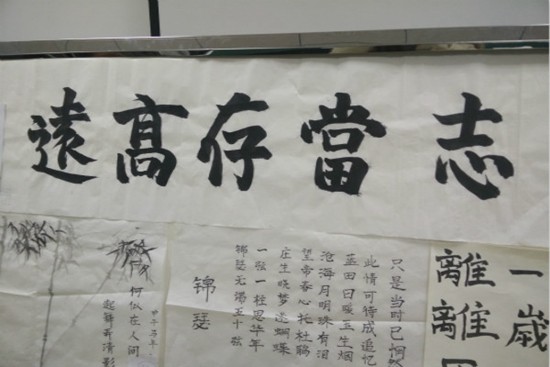 志當存高遠
锦瑟
锦瑟无端五十弦
一弦一柱思华年
庄生晓梦迷蝴蝶
望帝春心托杜鹃
沧海月明珠有泪
蓝田日暖玉生烟
此情可待成追忆
只是当时已惘然
起舞弄清影
何似在人间
離離
一歲